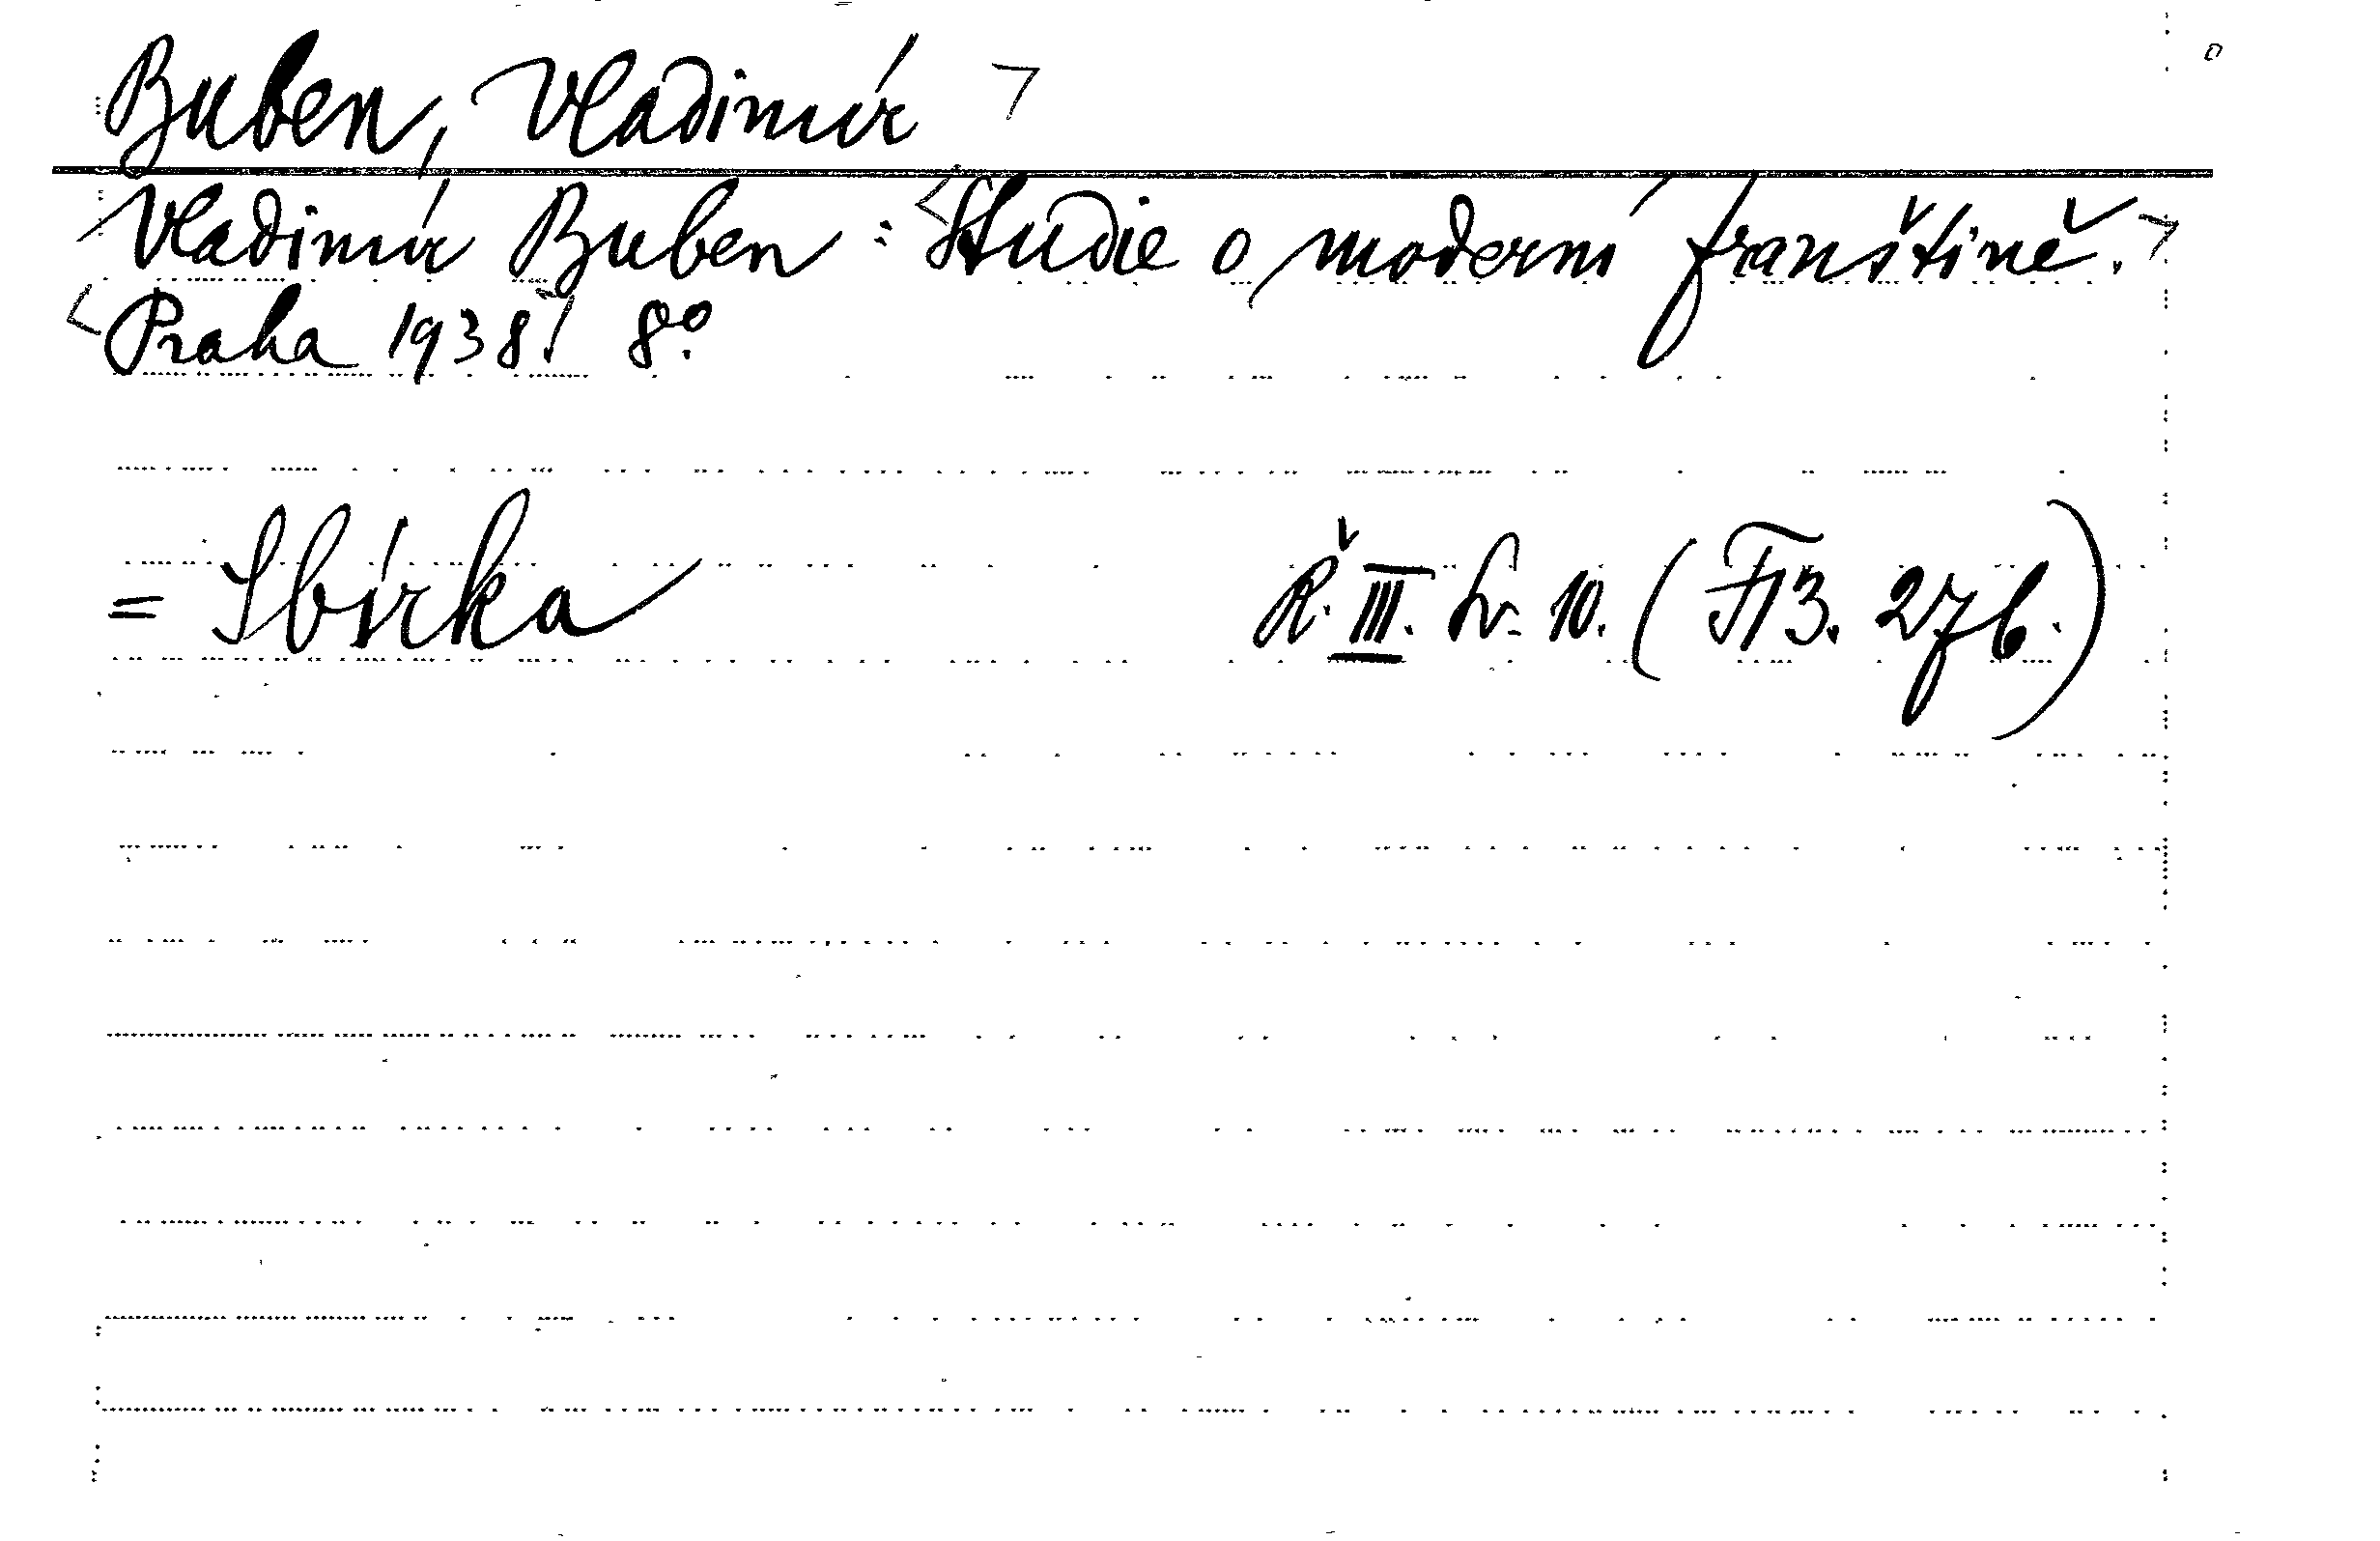 Buben, Vladimír
Vladimír Buben: Studie o moderní franštině.
Praha 1938. 8°.
= Sbírka Ř. III. sv. 10. (Fl 3. 27b.)